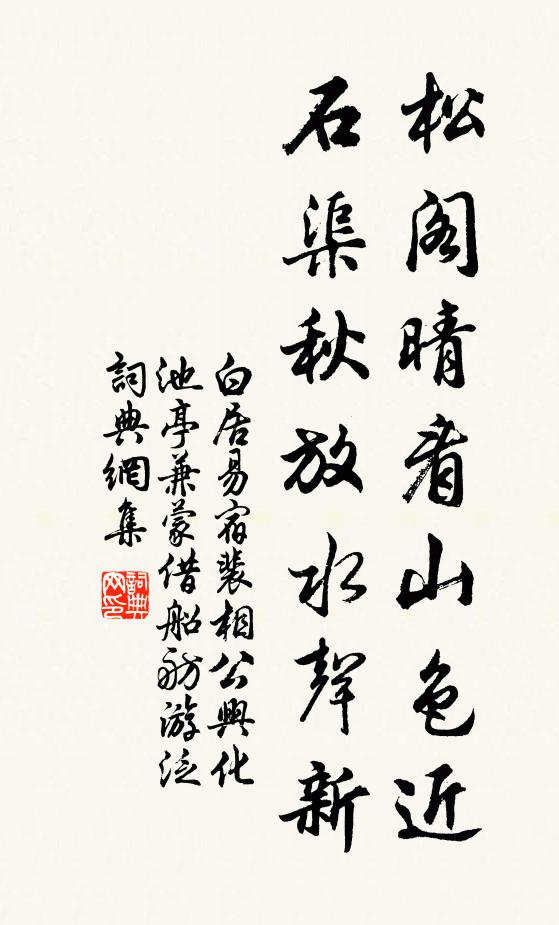 松阁晴看山色近
石渠秋放水聲新
白居易宿裴相公興化
池亭兼蒙借船舫游泛
詞典網集
詞典
网印